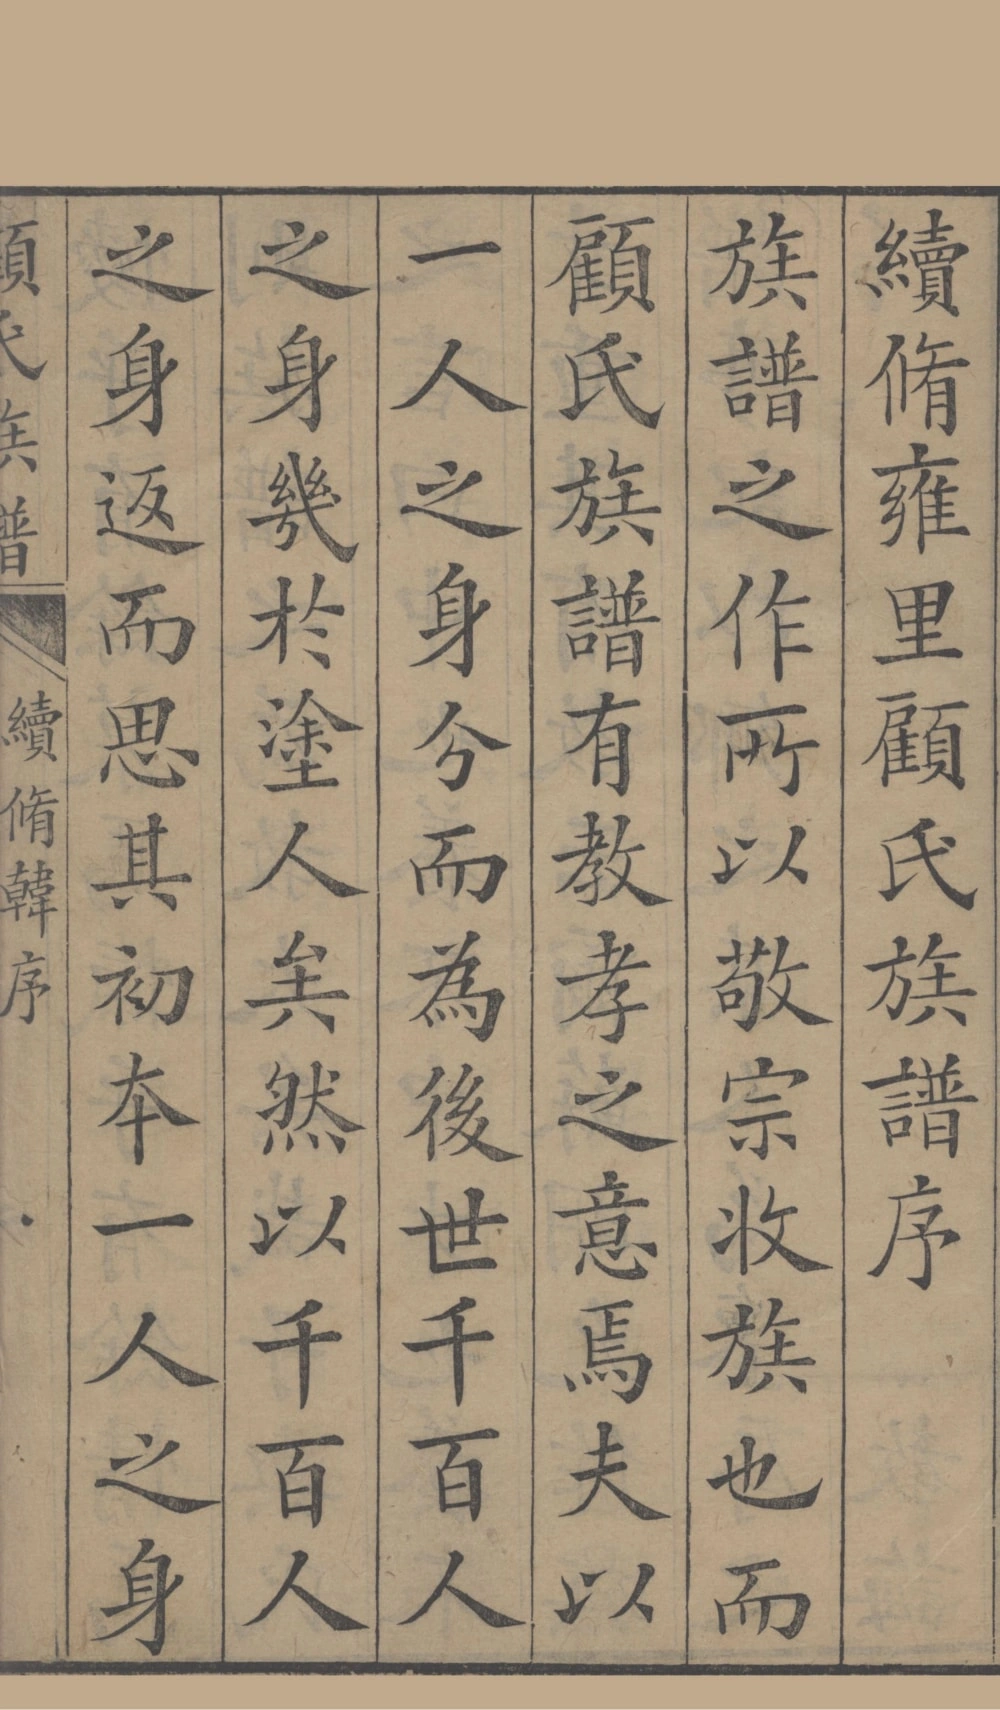 續脩雍里顧氏族譜序
族譜之作所以敬宗收族也而
顧氏族譜有教孝之意焉夫以
一人之身分而為後世千百人
之身幾於塗人矣然以千百人
之身返而思其初本一人之身
顧氏族譜
續脩韓序